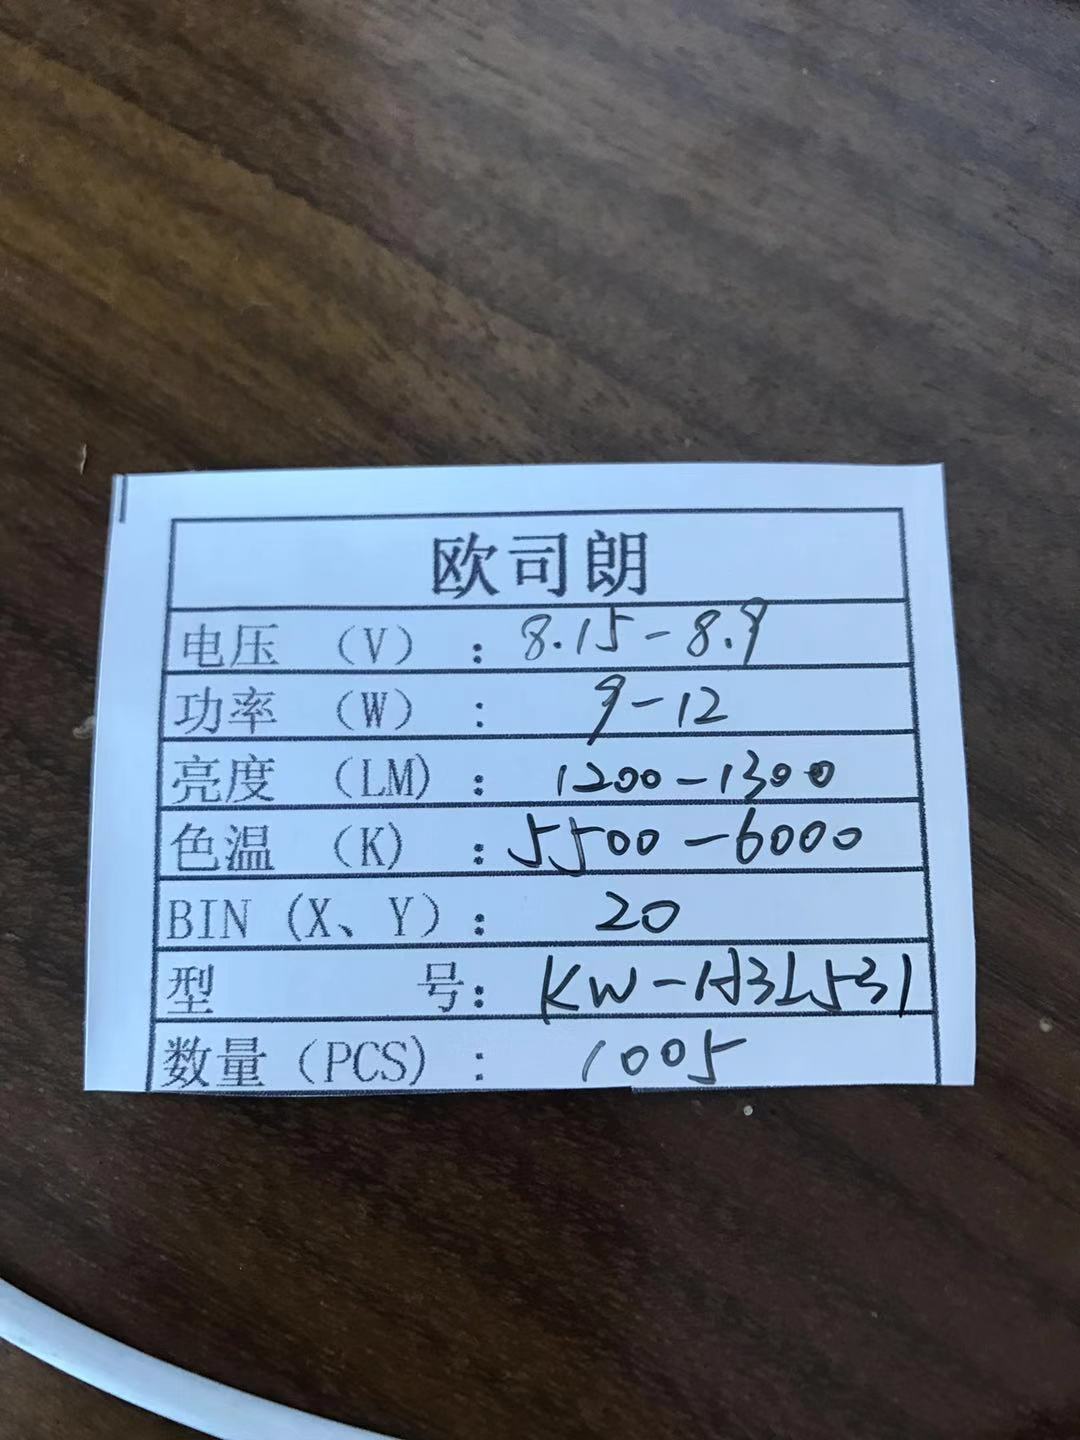 欧司朗
电压 （V）：8.15-8.9
功率 （W）：9-12
亮度 （LM）：1200-1300
色温 （K）：5500-6000
BIN（X、Y）：20
型号：KW-H3L531
数量（PCS）：1005